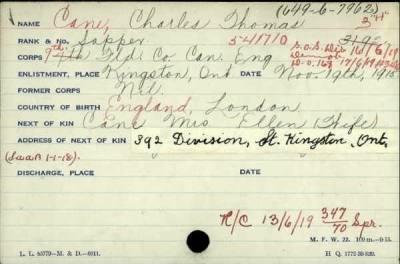 (649-C-7962)
NAME Cane, Charles Thomas 3"H"
RANK & No. Sapper 541710 3192
CORPS 9th Fld. Co. Can. Eng S.O.S. Dis 16/6/19
Demob. D.O. 163 17/6/19
ENLISTMENT, PLACE Kingston, Ont DATE Nov. 19th, 1915
FORMER CORPS Nil.
COUNTRY OF BIRTH England, London
NEXT OF KIN Cane Mrs Ellen (Wife)
ADDRESS OF NEXT OF KIN 392 Division, St. Kingston, Ont,
DISCHARGE, PLACE DATE
R/C 13/6/19 347/70 Spr.
M. F. W. 22.
L. L. 40779—M. & D.—6911. H Q. 1772-39-839.